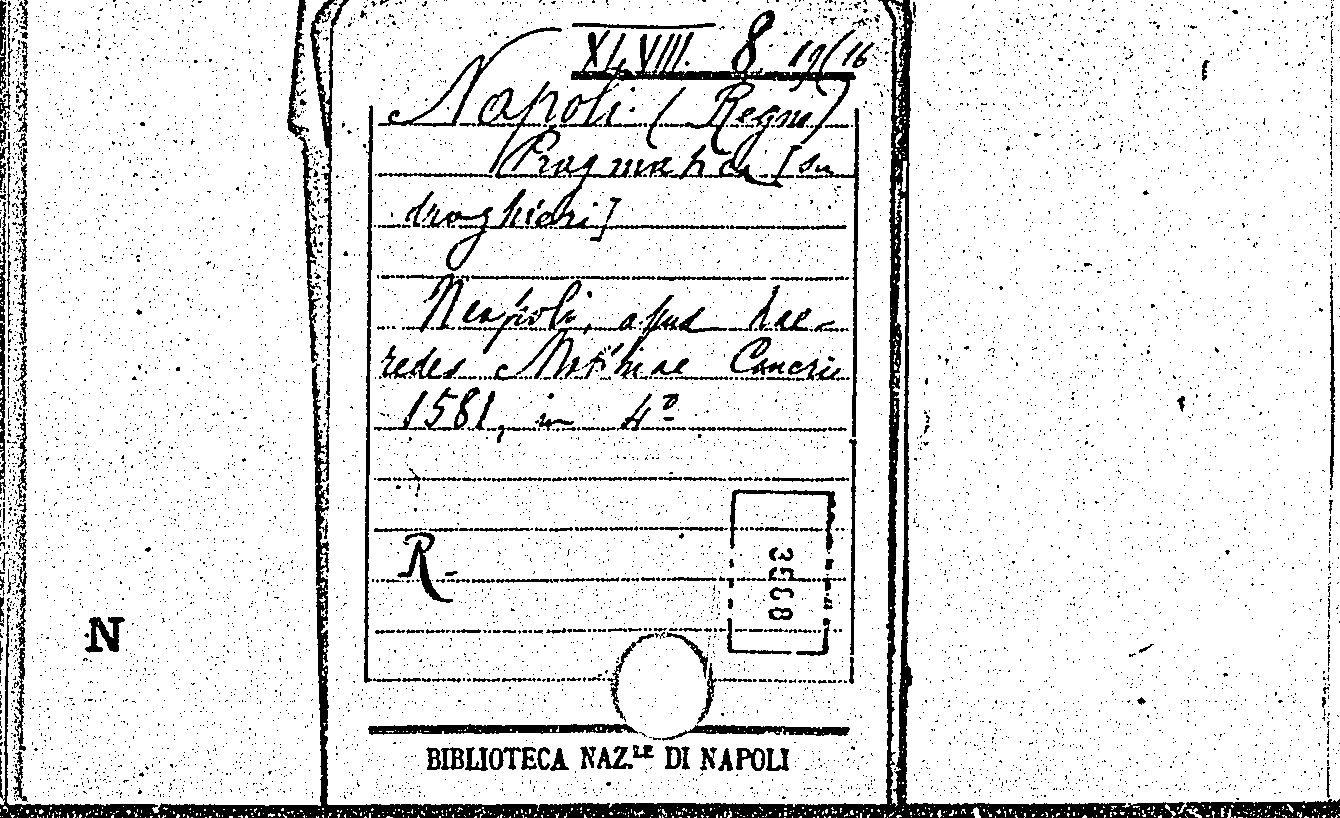 XLVIII. 8 19(16
Napoli. (Regno)
Pragmatica [su
droghieri]
Neapoli, apud hae-
redes Mathiae Cancrii
1581, in 4º
R.
N
BIBLIOTECA NAZ.LE DI NAPOLI